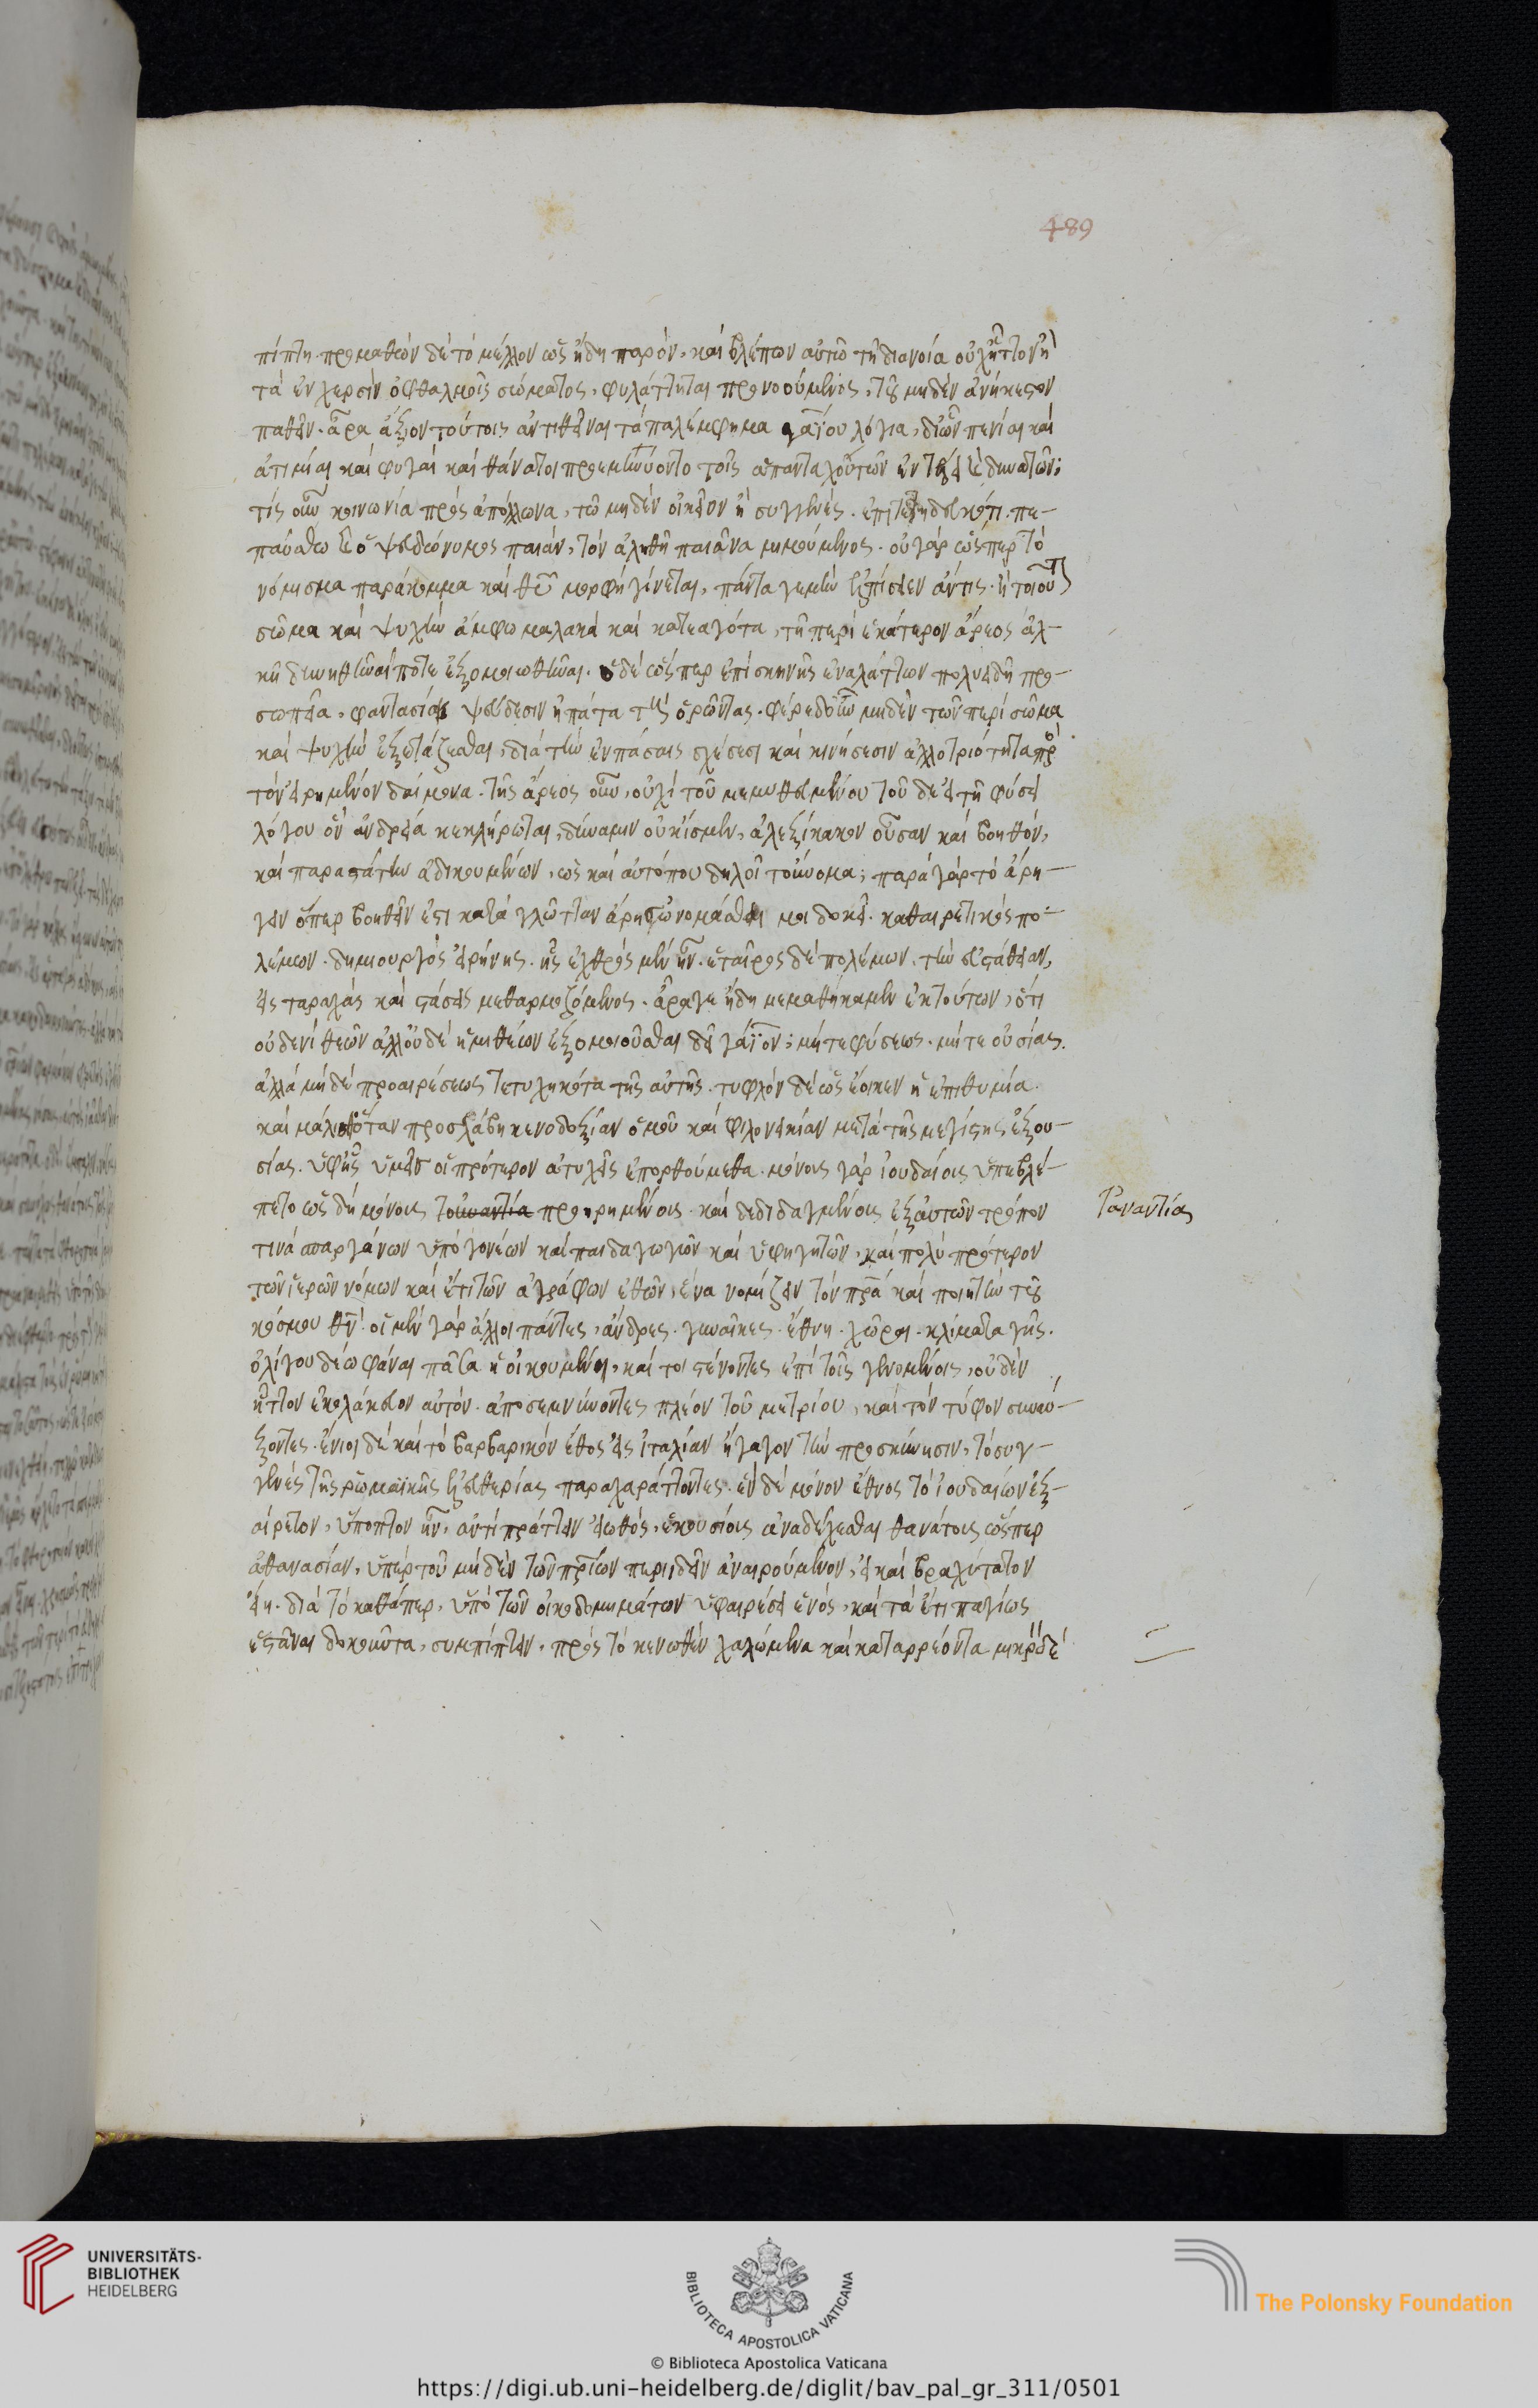 489
πίπτη. προμαθὼν δὲ τὸ μέλλον ὡς ἤδη παρὸν, καὶ βλέπων αὐτῶ τῆ διανοία οὐχ ἧττον ἢ
τὰ ἐν χερσὶν ὀφθαλμοῖς σώματος, φυλάττηται προνοούμενος, τοῦ μηδὲν ἀνήκεστον
παθεῖν. ἆρα ἄξιον τούτοις ἀντιθεῖναι τὰ παλίμφημα γαΐου λόγια, δι' ὧν πενίαι καὶ
ἀτιμίαι καὶ φυγαὶ καὶ θάνατοι προεμηνύοντο τοῖς ἁπανταχοῦ τῶν ἐν τέλει καὶ δυνατῶν;
τίς οὖν κοινωνία πρὸς ἀπόλλωνα, τῶ μηδὲν οἰκεῖον ἢ συγγενὲς ἐπιτετηδευκότι. πε-
παύσθω καὶ ὁ ψευδώνυμος παιὰν, τὸν ἀληθῆ παιᾶνα μιμούμενος. οὐ γὰρ ὥσπερ τὸ
νόμισμα παράκομμα καὶ θεοῦ μορφὴ γίνεται. πάντα γε μὴν ἐλπίσειεν ἄν τις. ἢ τοιοῦτον
σῶμα καὶ ψυχὴν ἄμφω μαλακὰ καὶ κατεαγότα, τῆ περὶ ἑκάτερον ἄρεος ἀλ-
κῆ δυνηθῆναί ποτε ἐξομοιωθῆναι. ὁ δὲ ὥσπερ ἐπὶ σκηνῆς ἐναλάττων πολυειδῆ προ-
σωπεῖα, φαντασίαις ψευδέσιν ἠπάτα τοὺς ὁρῶντας. φέρε δ' οὖν μηδὲν τῶν περὶ σῶμα
καὶ ψυχὴν ἐξετάζεσθαι, διὰ τὴν ἐν πάσαις σχέσεσι καὶ κινήσεσιν ἀλλοτριότητα πρὸς
τὸν εἰρημένον δαίμονα. τῆς ἄρεος οὖν, οὐχὶ τοῦ μεμυθευμένου τοῦ δὲ ἐν τῆ φύσει
λόγου ὃν ἀνδρεία κεκλήρωται, δύναμιν οὐκ ἴσμεν, ἀλεξίκακον οὖσαν καὶ βοηθὸν,
καὶ παραστάτιν ἀδικουμένων, ὡς καὶ αὐτό που δηλοῖ τοὔνομα; παρὰ γὰρ τὸ ἀρή-
γειν ὅπερ βοηθεῖν ἐστι κατὰ γλῶτταν ἄρης ὠνομάσθαι μοι δοκεῖ. καθαιρετικὸς πο-
λέμων. δημιουργὸς εἰρήνης. ἧς ἐχθρὸς μὲν ἦν. ἑταῖρος δὲ πολέμων. τὴν εὐστάθειαν,
εἰς ταραχὰς καὶ στάσεις μεθαρμοζόμενος. ἆρά γε ἤδη μεμαθήκαμεν ἐκ τούτων, ὅτι
οὐδενὶ θεῶν ἀλλ' οὐδὲ ἡμιθέων ἐξομοιοῦσθαι δεῖ γάϊον; μήτε φύσεως. μήτε οὐσίας.
ἀλλὰ μὴ δὲ προαιρέσεως τετυχηκότα τῆς αὐτῆς. τυφλὸν δὲ ὡς ἔοικεν ἡ ἐπιθυμία.
καὶ μάλισθ' ὅταν προσλάβη κενοδοξίαν ὁμοῦ καὶ φιλονεικίαν μετὰ τῆς μεγίστης ἐξου-
σίας. ὑφ' ἧς ἡμεῖς οἱ πρότερον ἀτυχεῖς ἐπορθούμεθα. μόνους γὰρ ἰουδαίους ὑπεβλέ-
πετο ὡς δὴ μόνους τοὐναντία προηρημένους. καὶ δεδιδαγμένους ἐξ αὐτῶν τρόπον
Τἀναντία
τινὰ σπαργάνων ὑπὸ γονέων καὶ παιδαγωγῶν καὶ ὑφηγητῶν, καὶ πολὺ πρότερον
τῶν ἱερῶν νόμων καὶ ἔτι τῶν ἀγράφων ἐθῶν, ἕνα νομίζειν τὸν πρα καὶ ποιητὴν τοῦ
κόσμου θν. οἱ μὲν γὰρ ἄλλοι πάντες, ἄνδρες. γυναῖκες. ἔθνη. χῶραι. κλίματα γῆς.
ὀλίγου δέω φάναι πᾶσα ἡ οἰκουμένη, καί τοι στένοντες ἐπὶ τοῖς γενομένοις, οὐδὲν
ἧττον ἐκολάκευον αὐτὸν. ἀποσεμνύνοντες πλέον τοῦ μετρίου, καὶ τὸν τύφον συναύ-
ξοντες. ἔνιοι δὲ καὶ τὸ βαρβαρικὸν ἔθος εἰς ἰταλίαν ἤγαγον τὴν προσκύνησιν, τὸ συγ-
γενὲς τῆς ῥωμαϊκῆς ἐλευθερίας παραχαράττοντες. ἓν δὲ μόνον ἔθνος τὸ ἰουδαίων ἐξ-
αίρετον, ὕποπτον ἦν, ἀντιπράττειν εἰωθὸς, ἑκουσίους ἀναδέχεσθαι θανάτους ὥσπερ
ἀθανασίαν, ὑπὲρ τοῦ μὴ δὲν τῶν πρίων περιιδεῖν ἀναιρούμενον, εἰ καὶ βραχύτατον
εἴη. διὰ τὸ καθάπερ, ὑπὸ τῶν οἰκοδομημάτων ὑφαιρέσει ἑνὸς, καὶ τὰ ἔτι παγίως
ἑστᾶναι δοκοῦντα, συμπίπτειν, πρὸς τὸ κενωθὲν χαλώμενα καὶ καταρρέοντα μικρὸν δὲ
UNIVERSITÄTS-
BIBLIOTHEK
HEIDELBERG
BIBLIOTECA APOSTOLICA VATICANA
The Polonsky Foundation
© Biblioteca Apostolica Vaticana
https://digi.ub.uni-heidelberg.de/diglit/bav_pal_gr_311/0501